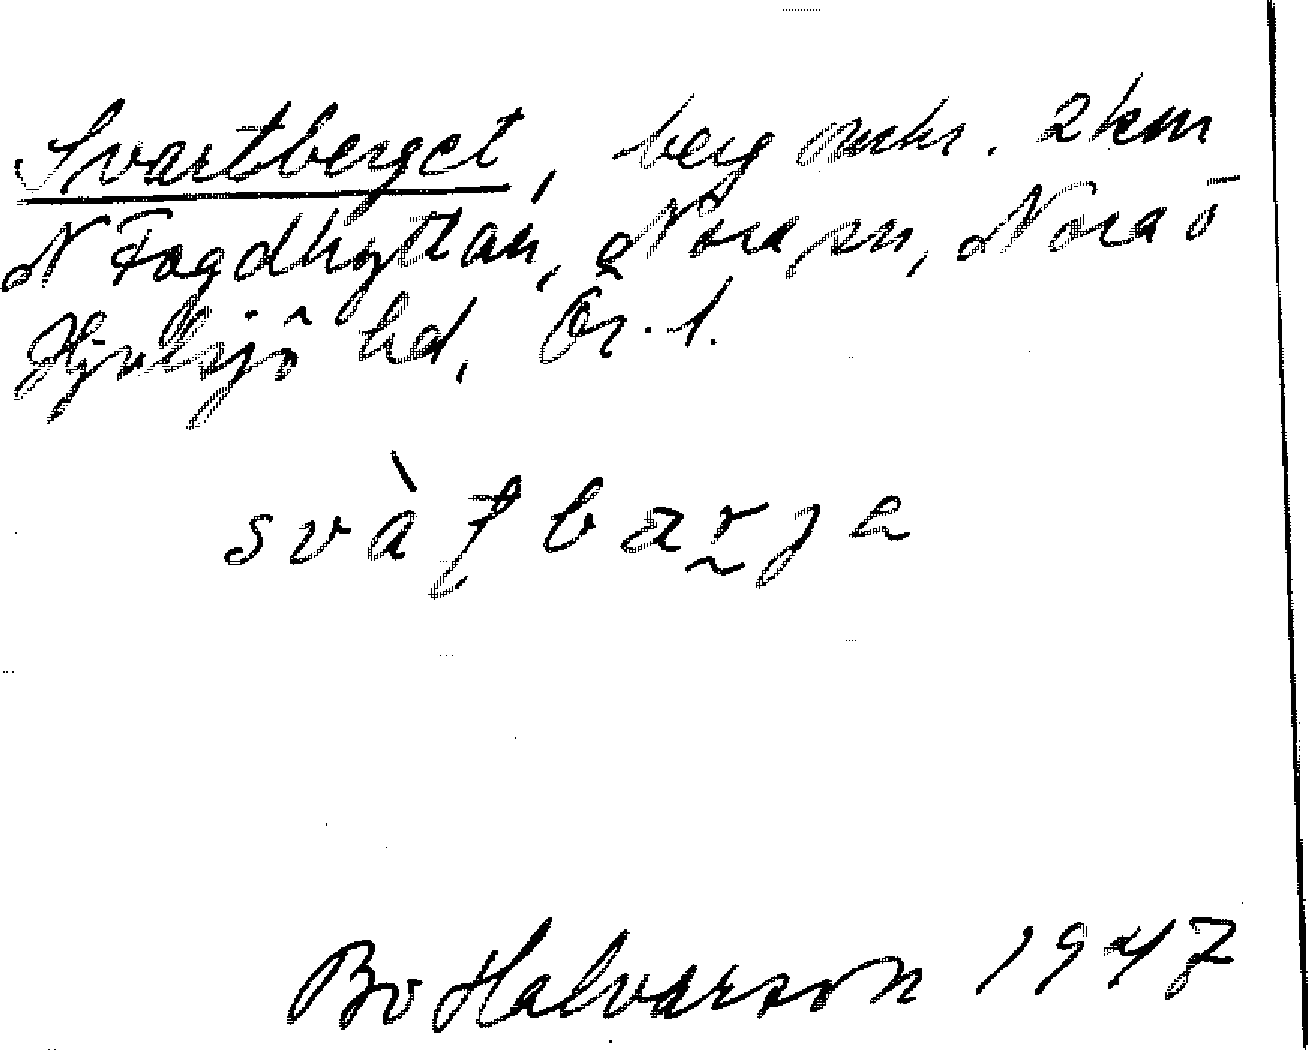 Svartberget, berg omkr. 2km
N Fogdhyttan, Nora sn, Nora o
Hjulsjö hd, Ör. l.
svàt̩barja
Bo Halvarson 1947